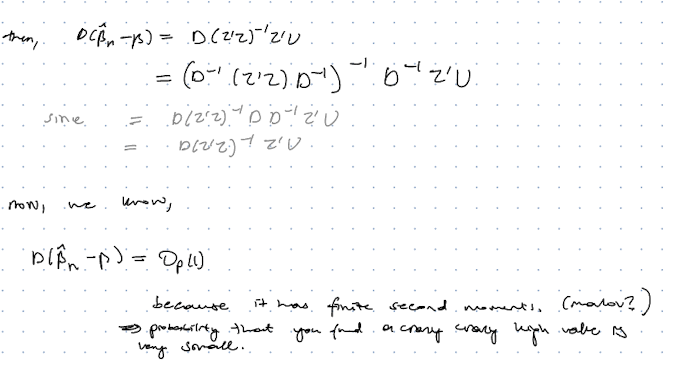 then, D(β̂ₙ-β) = D(Z'Z)⁻¹Z'U
= (D⁻¹(Z'Z)D⁻¹)⁻¹ D⁻¹Z'U
sine = D(Z'Z)⁻¹ D D⁻¹ Z'U
= D(Z'Z)⁻¹ Z'U
now, we know,
D(β̂ₙ-β) = Oₚ(1)
because it has finite second moments. (markov?)
⇒ probability that you find a crazy crazy high value is
very small.